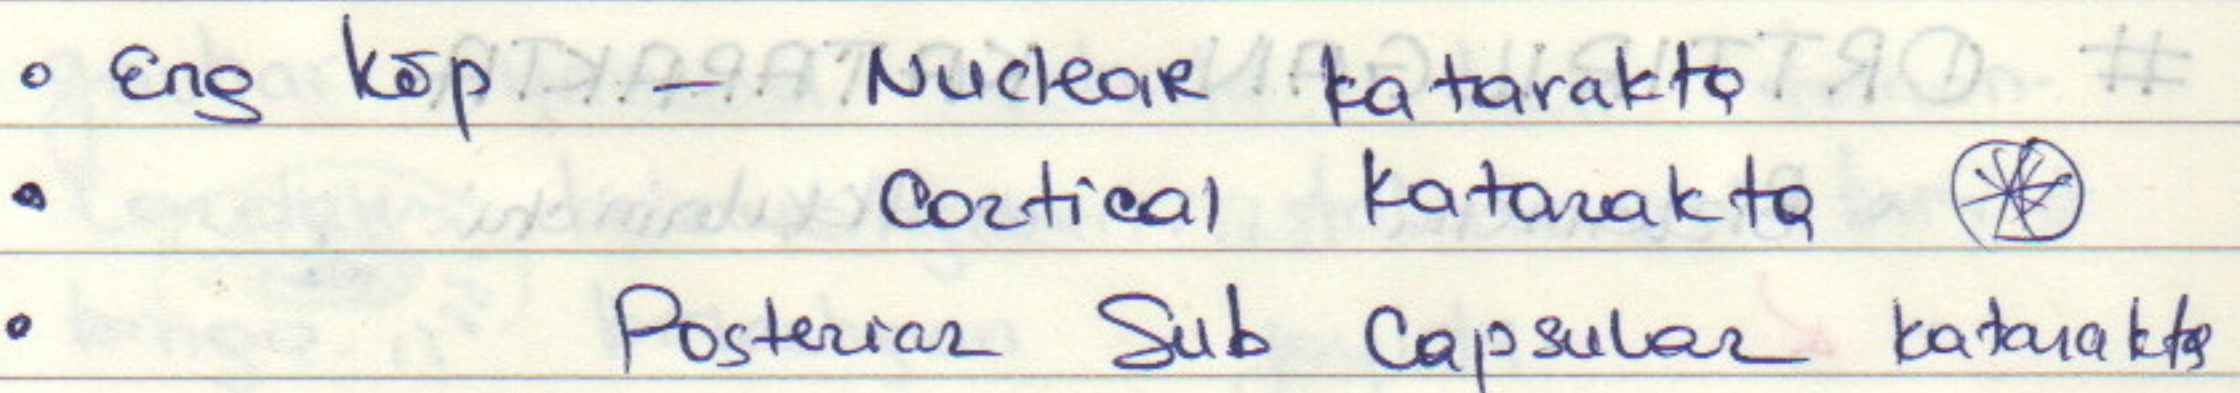 • Eng köp – Nuclear katarakta
• Cortical katarakta
• Posterior Sub Capsular katarakta